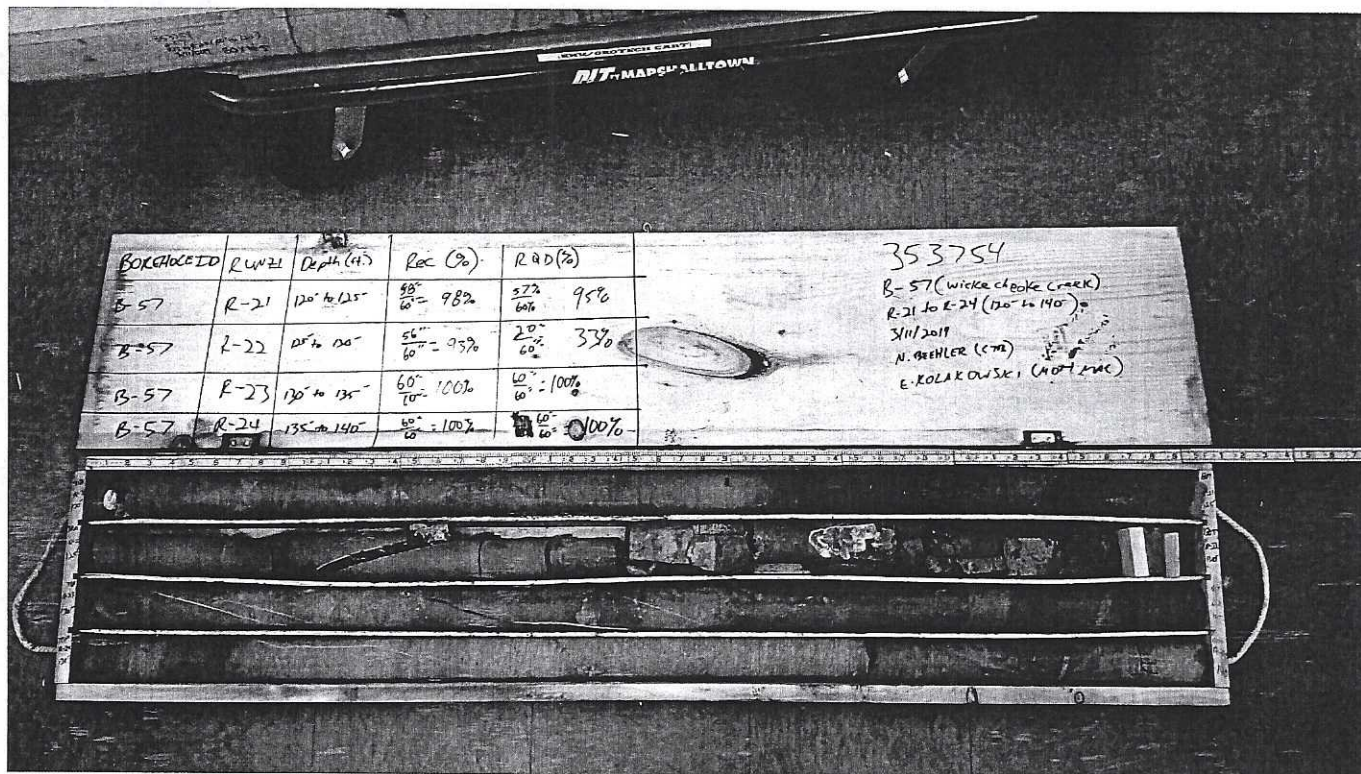 BIT MARSHALLTOWN
BOREHOLE ID RUN# Depth (ft.) Rec (%) RQD (%)
B-57 R-21 120' to 125' 58"/60" = 98% 57%/60% 95%
B-57 R-22 125' to 130' 56"/60" = 93% 20"/60" 33%
B-57 R-23 130' to 135' 60" = 100% 60"/60" = 100%
B-57 R-24 135' to 140' 60"/60" = 100% 60"/60" = 100%
353754
B-57 (Wickecheoke Creek)
R-21 to R-24 (120' to 140')
3/11/2019
N. BEEHLER (CTB)
E. KOLAKOWSKI (MOTT MAC)